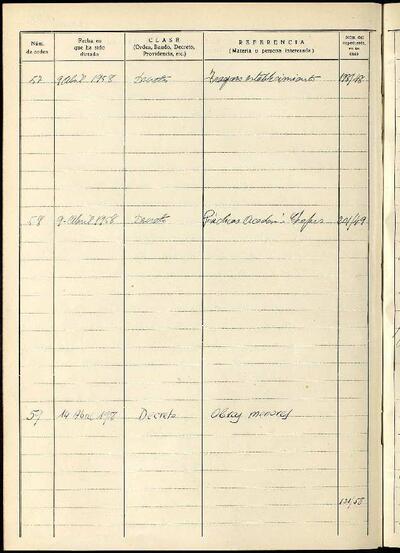 Núm. de orden
Fecha en que ha sido dictada
CLASE
(Orden, Bando, Decreto, Providencia, etc.)
REFERENCIA
(Materia o persona interesada)
Núm. del expediente, en su caso
57 9 Abril 1958 Decreto establecimiento
58 9 - Abril 1958 Decreto 201/49
59 14 Abril 1958 Decreto Obras menores
121/58